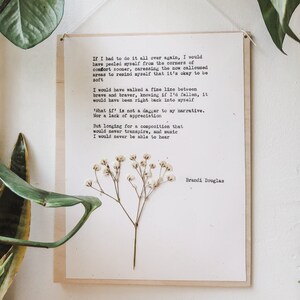 If I had to do it all over again, I would
have peeled myself from the corners of
comfort corner, caressing the now calloused
areas to remind myself that it's okay to be
soft
I would have walked a fine line between
brave and braver, knowing if I'd fallen, it
would have been right back into myself
'What if' is not a dagger to my narrative.
Nor a lack of appreciation
But longing for a composition that
would never transpire, and music
I would never be able to hear
Brandi Douglas